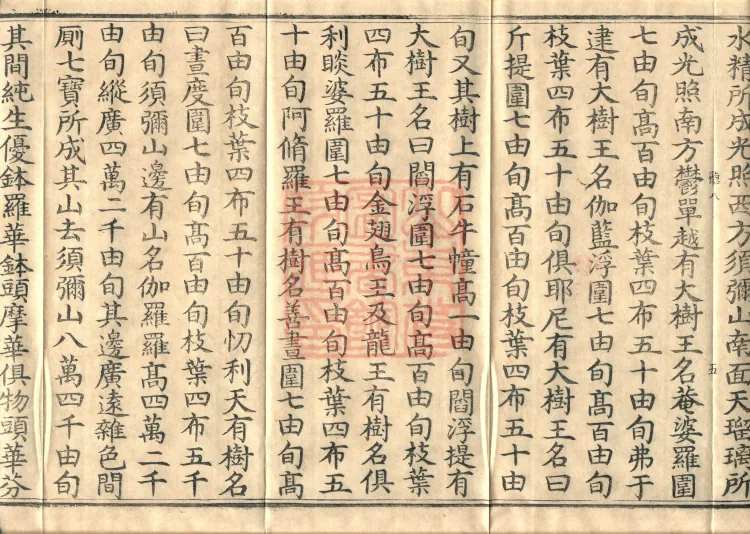 水精所成光照西方須彌山南面天瑠璃所
成光照南方鬱單越有大樹王名菴婆羅圍
七由旬高百由旬枝葉四布五十由旬弗于
逮有大樹王名伽藍浮圍七由旬高百由旬
枝葉四布五十由旬俱耶尼有大樹王名曰
斤提圍七由旬高百由旬枝葉四布五十由
旬又其樹上有石牛幢高一由旬閻浮提有
大樹王名曰閻浮圍七由旬高百由旬枝葉
四布五十由旬金翅鳥王及龍王有樹名俱
利睒婆羅圍七由旬高百由旬枝葉四布五
十由旬阿脩羅王有樹名善晝圍七由旬高
百由旬枝葉四布五十由旬忉利天有樹名
曰晝度圍七由旬高百由旬枝葉四布五千
由旬須彌山邊有山名伽羅羅高四萬二千
由旬縱廣四萬二千由旬其邊廣遠雜色間
廁七寶所成其山去須彌山八萬四千由旬
其間純生優鉢羅華鉢頭摩華俱物頭華芬